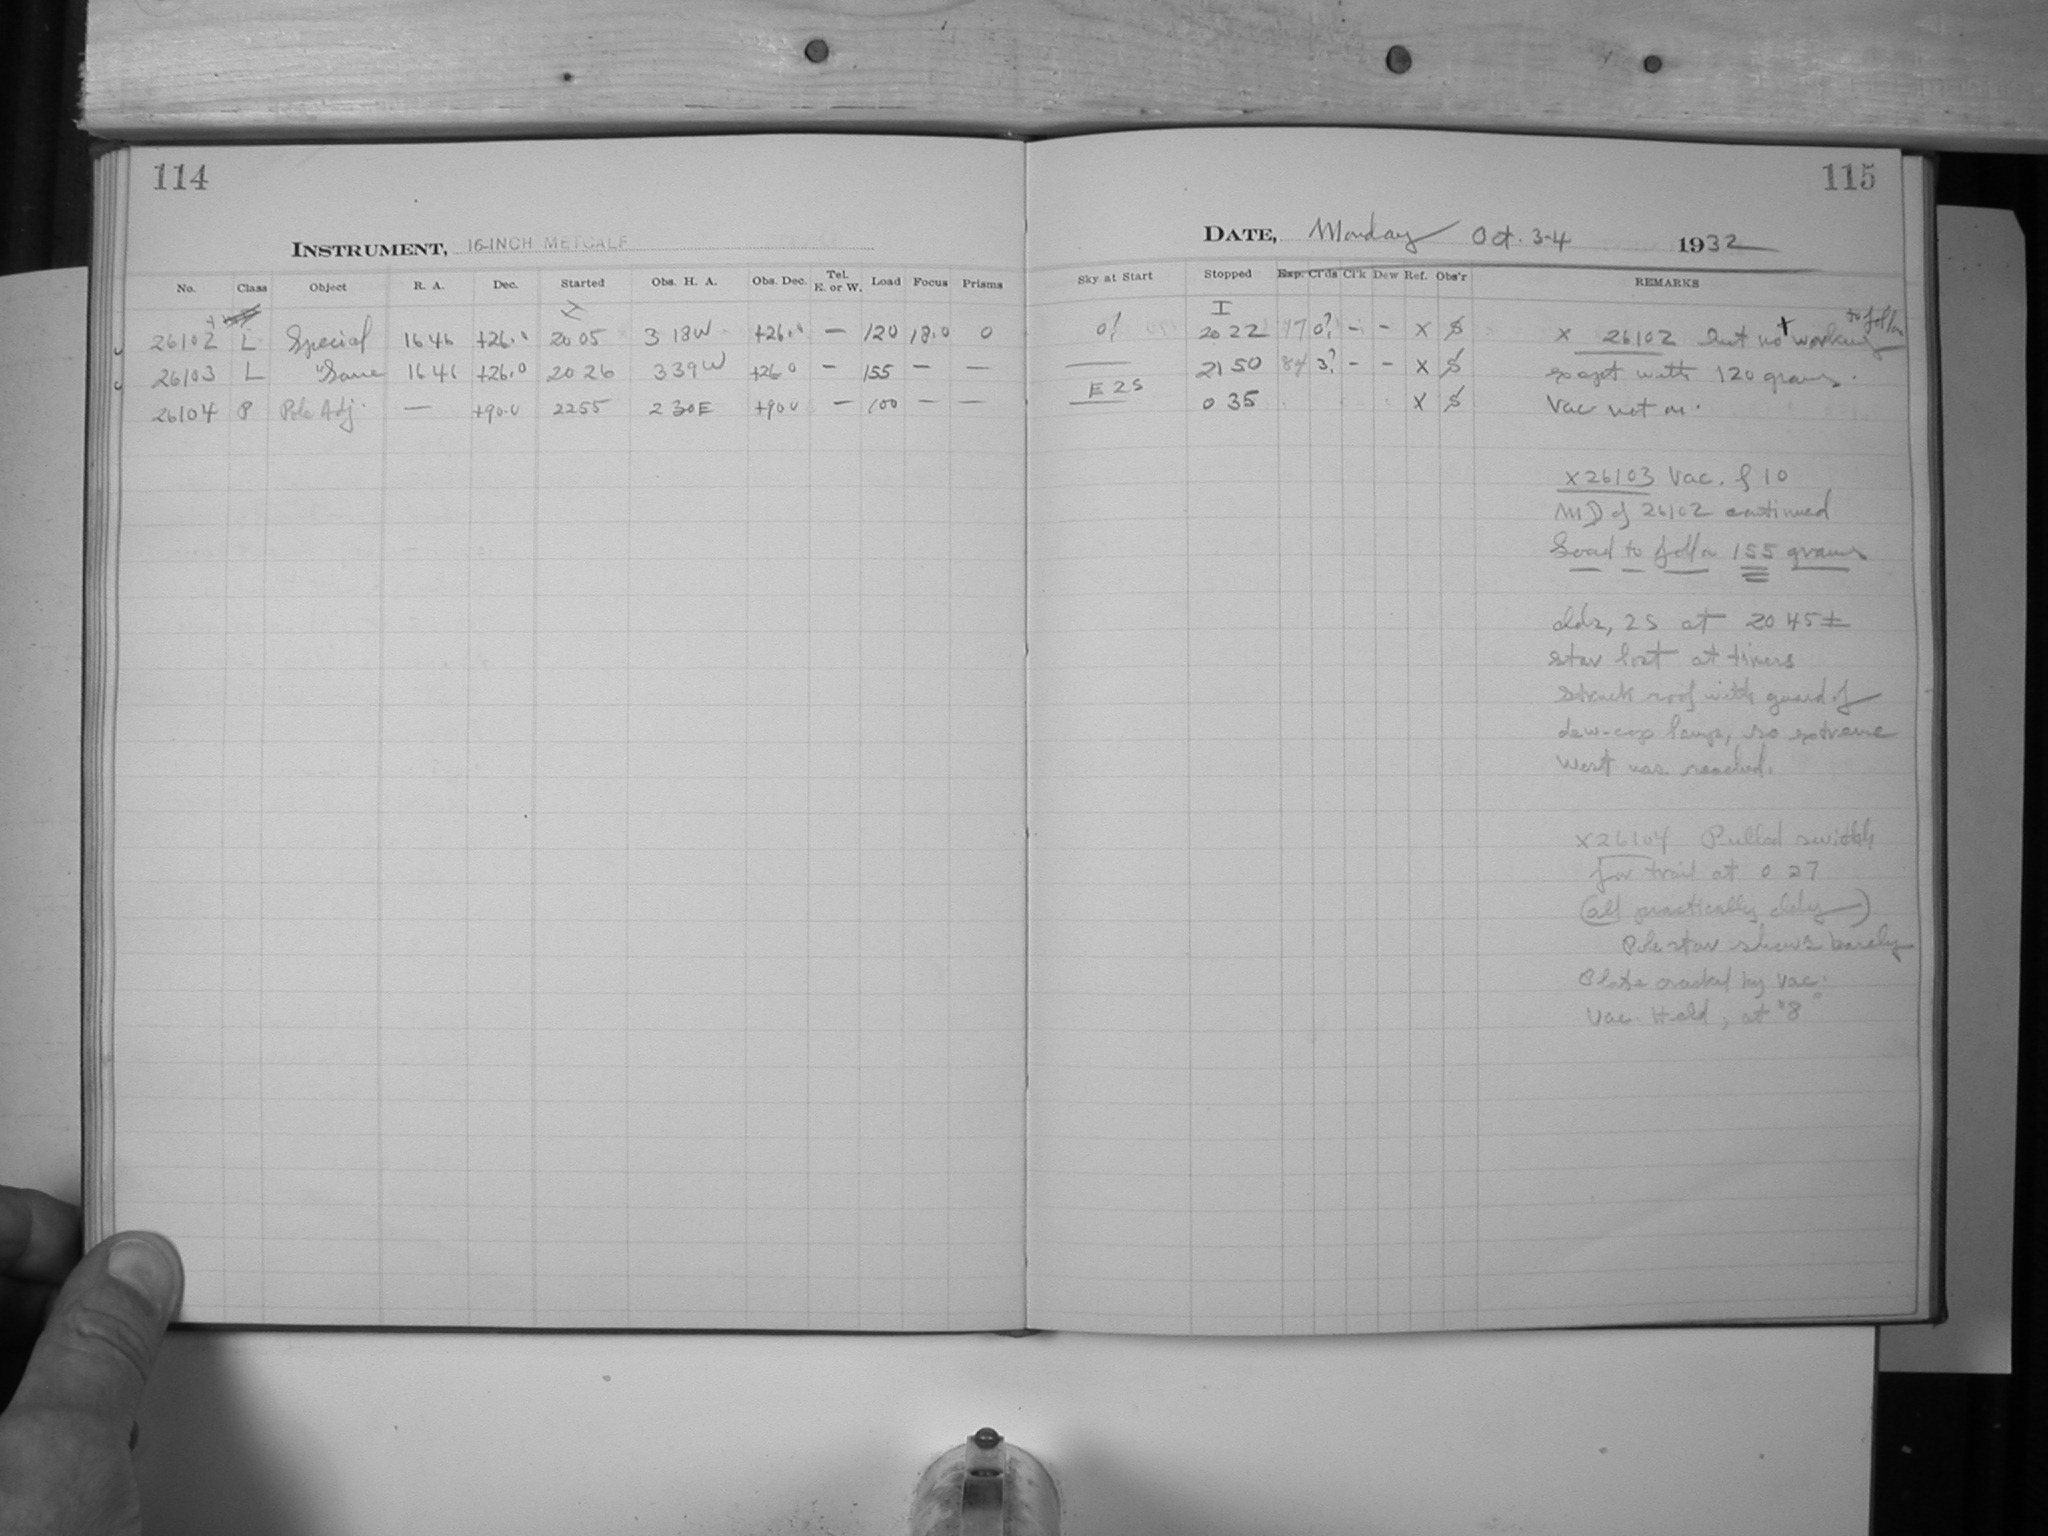 114
INSTRUMENT, 16-INCH METCALF
No. Class Object R. A. Dec. Started Obs. H. A. Obs. Dec. Tel. E. or W. Load Focus Prisms
26102 L Special 16 46 +26.0 20 05 3 18 W +26.0 — 120 18.0 0
26103 L "Same 16 46 +26.0 20 26 3 39 W +26 0 — 155 — —
26104 P Pole Adj. — +90.0 22 55 2 30 E +90 0 — 100 — —
115
DATE, Monday Oct. 3-4 1932
Sky at Start Stopped Exp. Cl'ds Cl'k Dew Ref. Obs'r REMARKS
I
20 22 17 0? - - X
— 21 50 84 3? - - X
E 2S 0 35 X
to follow
X 26102 Inst not working
except with 120 grams.
Vac not on.
X 26103 Vac. of 10
MD of 26102 continued
Load to follow 155 grams
clds, 2S at 20 45 ±
star lost at times
Struck roof with guard of
dew-cap lamps, so extreme
West was reached.
X 26104 Pulled switch
for trail at 0 27
(all practically cldy)
Pole star shows barely
Plate cracked by vac.
Vac. Held, at "8"